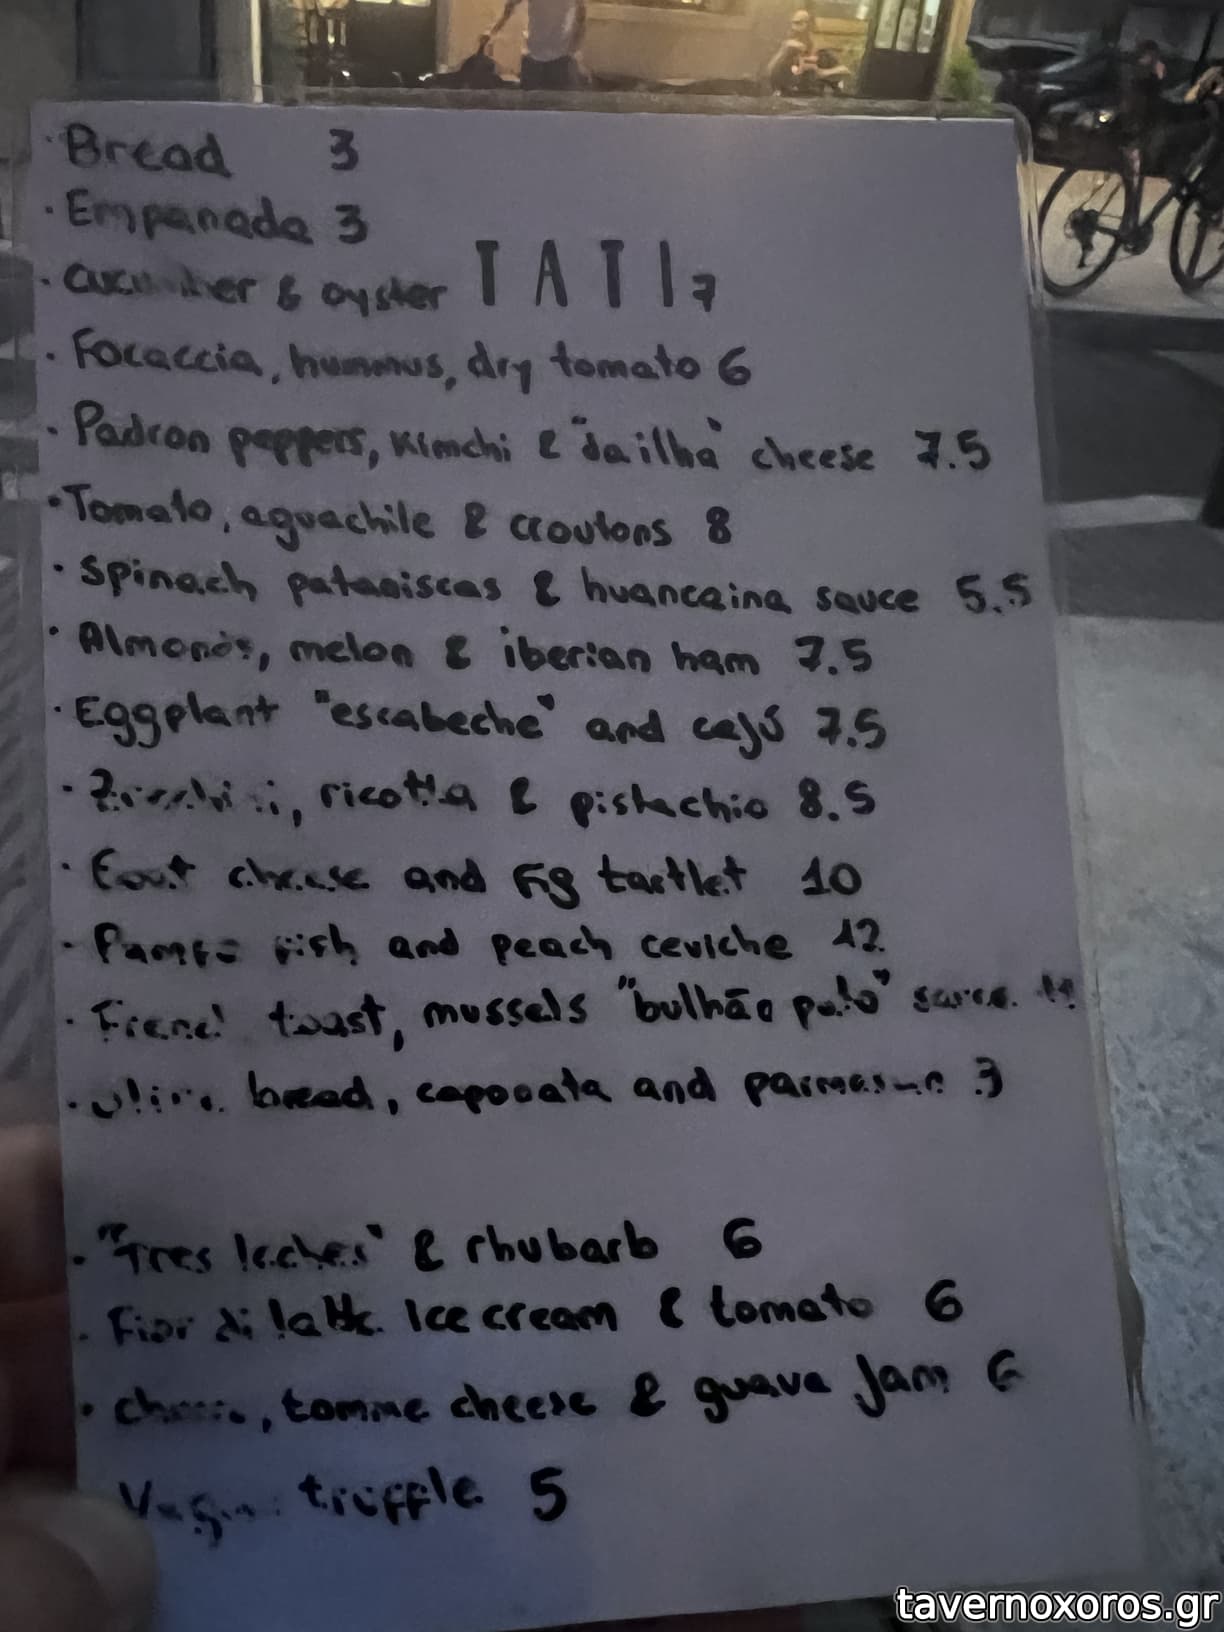 · Bread 3
· Empanada 3
· Cucumber & oyster 7
TATI
· Focaccia, hummus, dry tomato 6
· Padron peppers, Kimchi & "da ilha" cheese 7.5
· Tomato, aguachile & croutons 8
· Spinach pataniscas & huancaina sauce 5.5
· Almonds, melon & iberian ham 7.5
· Eggplant "escabeche" and cajú 7.5
· Zucchini, ricotta & pistachio 8.5
· cheese and Fig tartlet 10
· fish and peach ceviche 12
· toast, mussels "bulhão pato" sauce
· bread, caponata and parmesan
· "Tres leches" & rhubarb 6
· Fior di latte Ice cream & tomato 6
· tomme cheese & guava Jam 6
Vegan truffle 5
tavernoxoros.gr